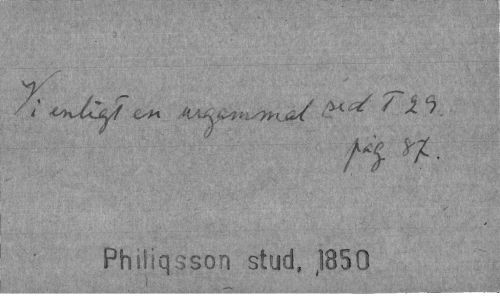 Vi enligt en urgammal sed T 29.
pag 87.
Philiqsson stud, 1850